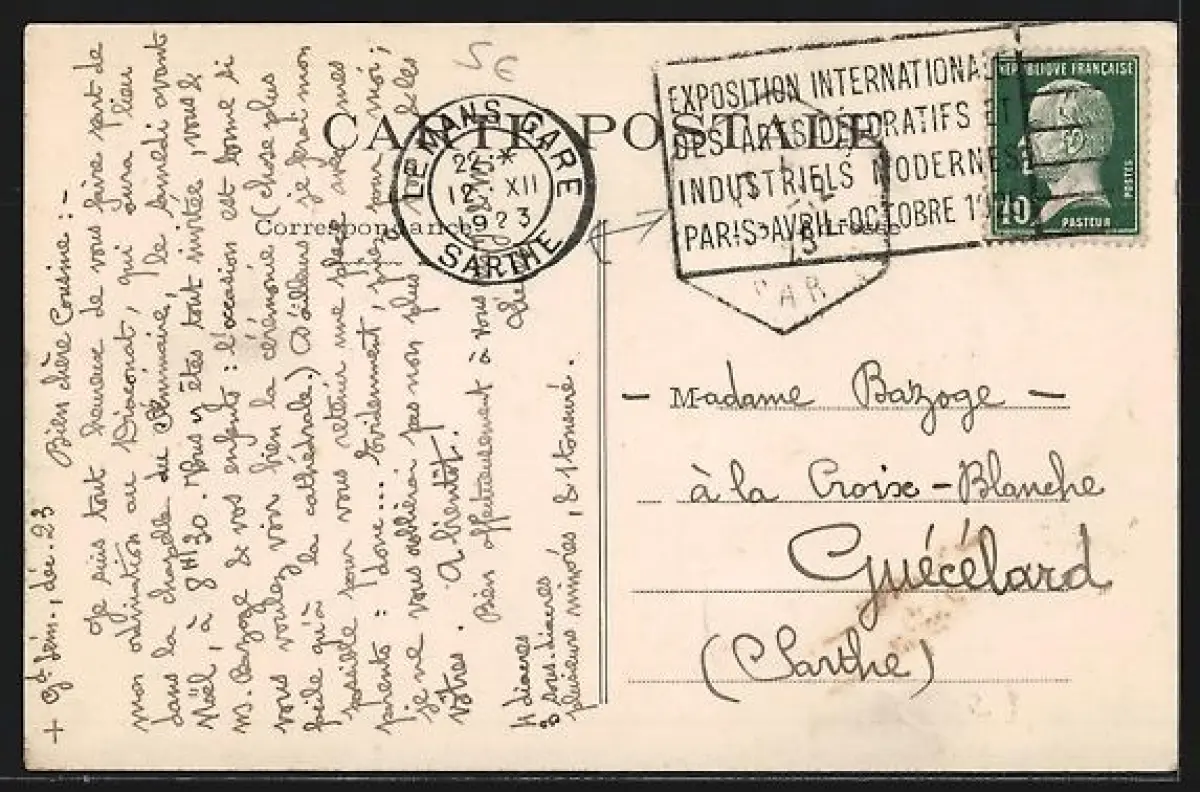 CARTE POSTALE
Correspondance
56
LE MANS-GARE
22 *
12 XII
1923
SARTHE
EXPOSITION INTERNATIONALE
DES ARTS DÉCORATIFS ET
INDUSTRIELS MODERNES
PARIS-AVRIL-OCTOBRE
RÉPUBLIQUE FRANÇAISE
10
PASTEUR
POSTES
+ Gd Sém., déc. 23
Bien chère Cousine : -
Je suis tout heureux de vous faire part de
mon ordination au Diaconat, qui aura lieu
dans la chapelle du Séminaire, le samedi avant
Noël, à 8H30. Vous y êtes tout invitée, vous &
M. Bazoge & vos enfants : l'occasion est bonne si
vous voulez voir bien la cérémonie (chose plus
facile qu'à la cathédrale.) D'ailleurs je ferai mon
possible pour vous retenir une place avec mes
parents : donc... Evidemment, priez pour moi ;
je ne vous oublierai pas non plus vous & les
vôtres. A bientôt.
Bien affectueusement à vous
4 diacres
8 sous-diacres
plusieurs minorés, & 1 tonsuré.
- Madame Bazoge -
à la Croix-Blanche
Guécélard
(Sarthe)